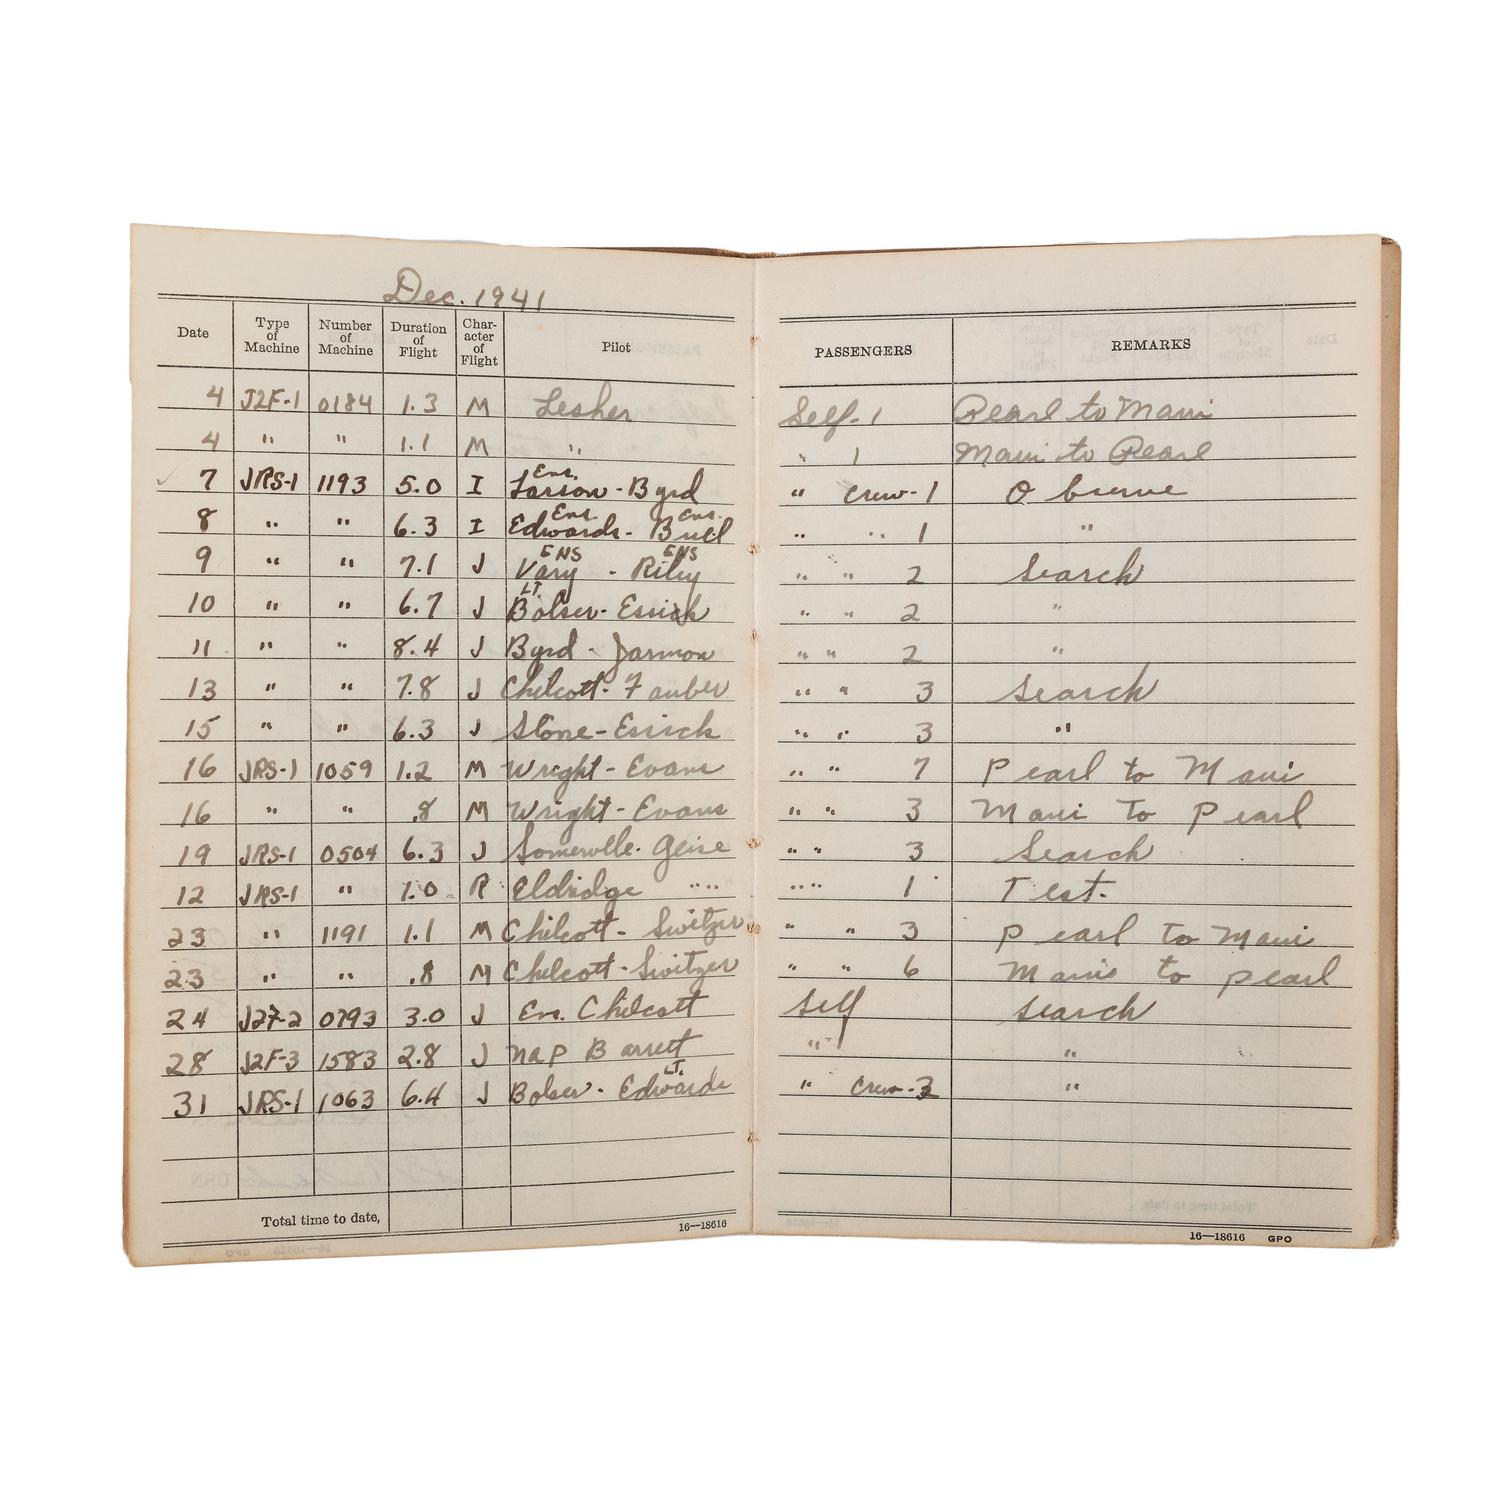 Dec. 1941
Date Type of Machine Number of Machine Duration of Flight Char-acter of Flight Pilot PASSENGERS REMARKS
4 J2F-1 0184 1.3 M Lesher Self-1 Pearl to Maui
4 " " 1.1 M " " 1 Maui to Pearl
7 JRS-1 1193 5.0 I Ens. Larson - Byrd " crew-1 Observe
8 " " 6.3 I Ens. Edwards - Ens. " " 1 "
9 " " 7.1 J ENS Vary - ENS Riley " " 2 Search
10 " " 6.7 J LT. Bolser - Essick " " 2 "
11 " " 8.4 J Byrd - Jarmon " " 2 "
13 " " 7.8 J Chilcott - Fauber " " 3 Search
15 " " 6.3 J Stone - Essick " " 3 "
16 JRS-1 1059 1.2 M Wright - Evans " " 7 Pearl to Maui
16 " " .8 M Wright - Evans " " 3 Maui To Pearl
19 JRS-1 0504 6.3 J Somerville - " " 3 Search
12 JRS-1 " 1.0 R Eldridge " " " " 1 Test.
23 " 1191 1.1 M Chilcott - Switzer " " 3 Pearl To Maui
23 " " .8 M Chilcott - Switzer " " 6 Maui to pearl
24 J2F-2 0793 3.0 J Ens. Chilcott Self Search
28 J2F-3 1583 2.8 J nap Barrett " "
31 JRS-1 1063 6.4 J Bolser - LT. Edwards " crew-3 "
Total time to date,
16—18616
16—18616 GPO